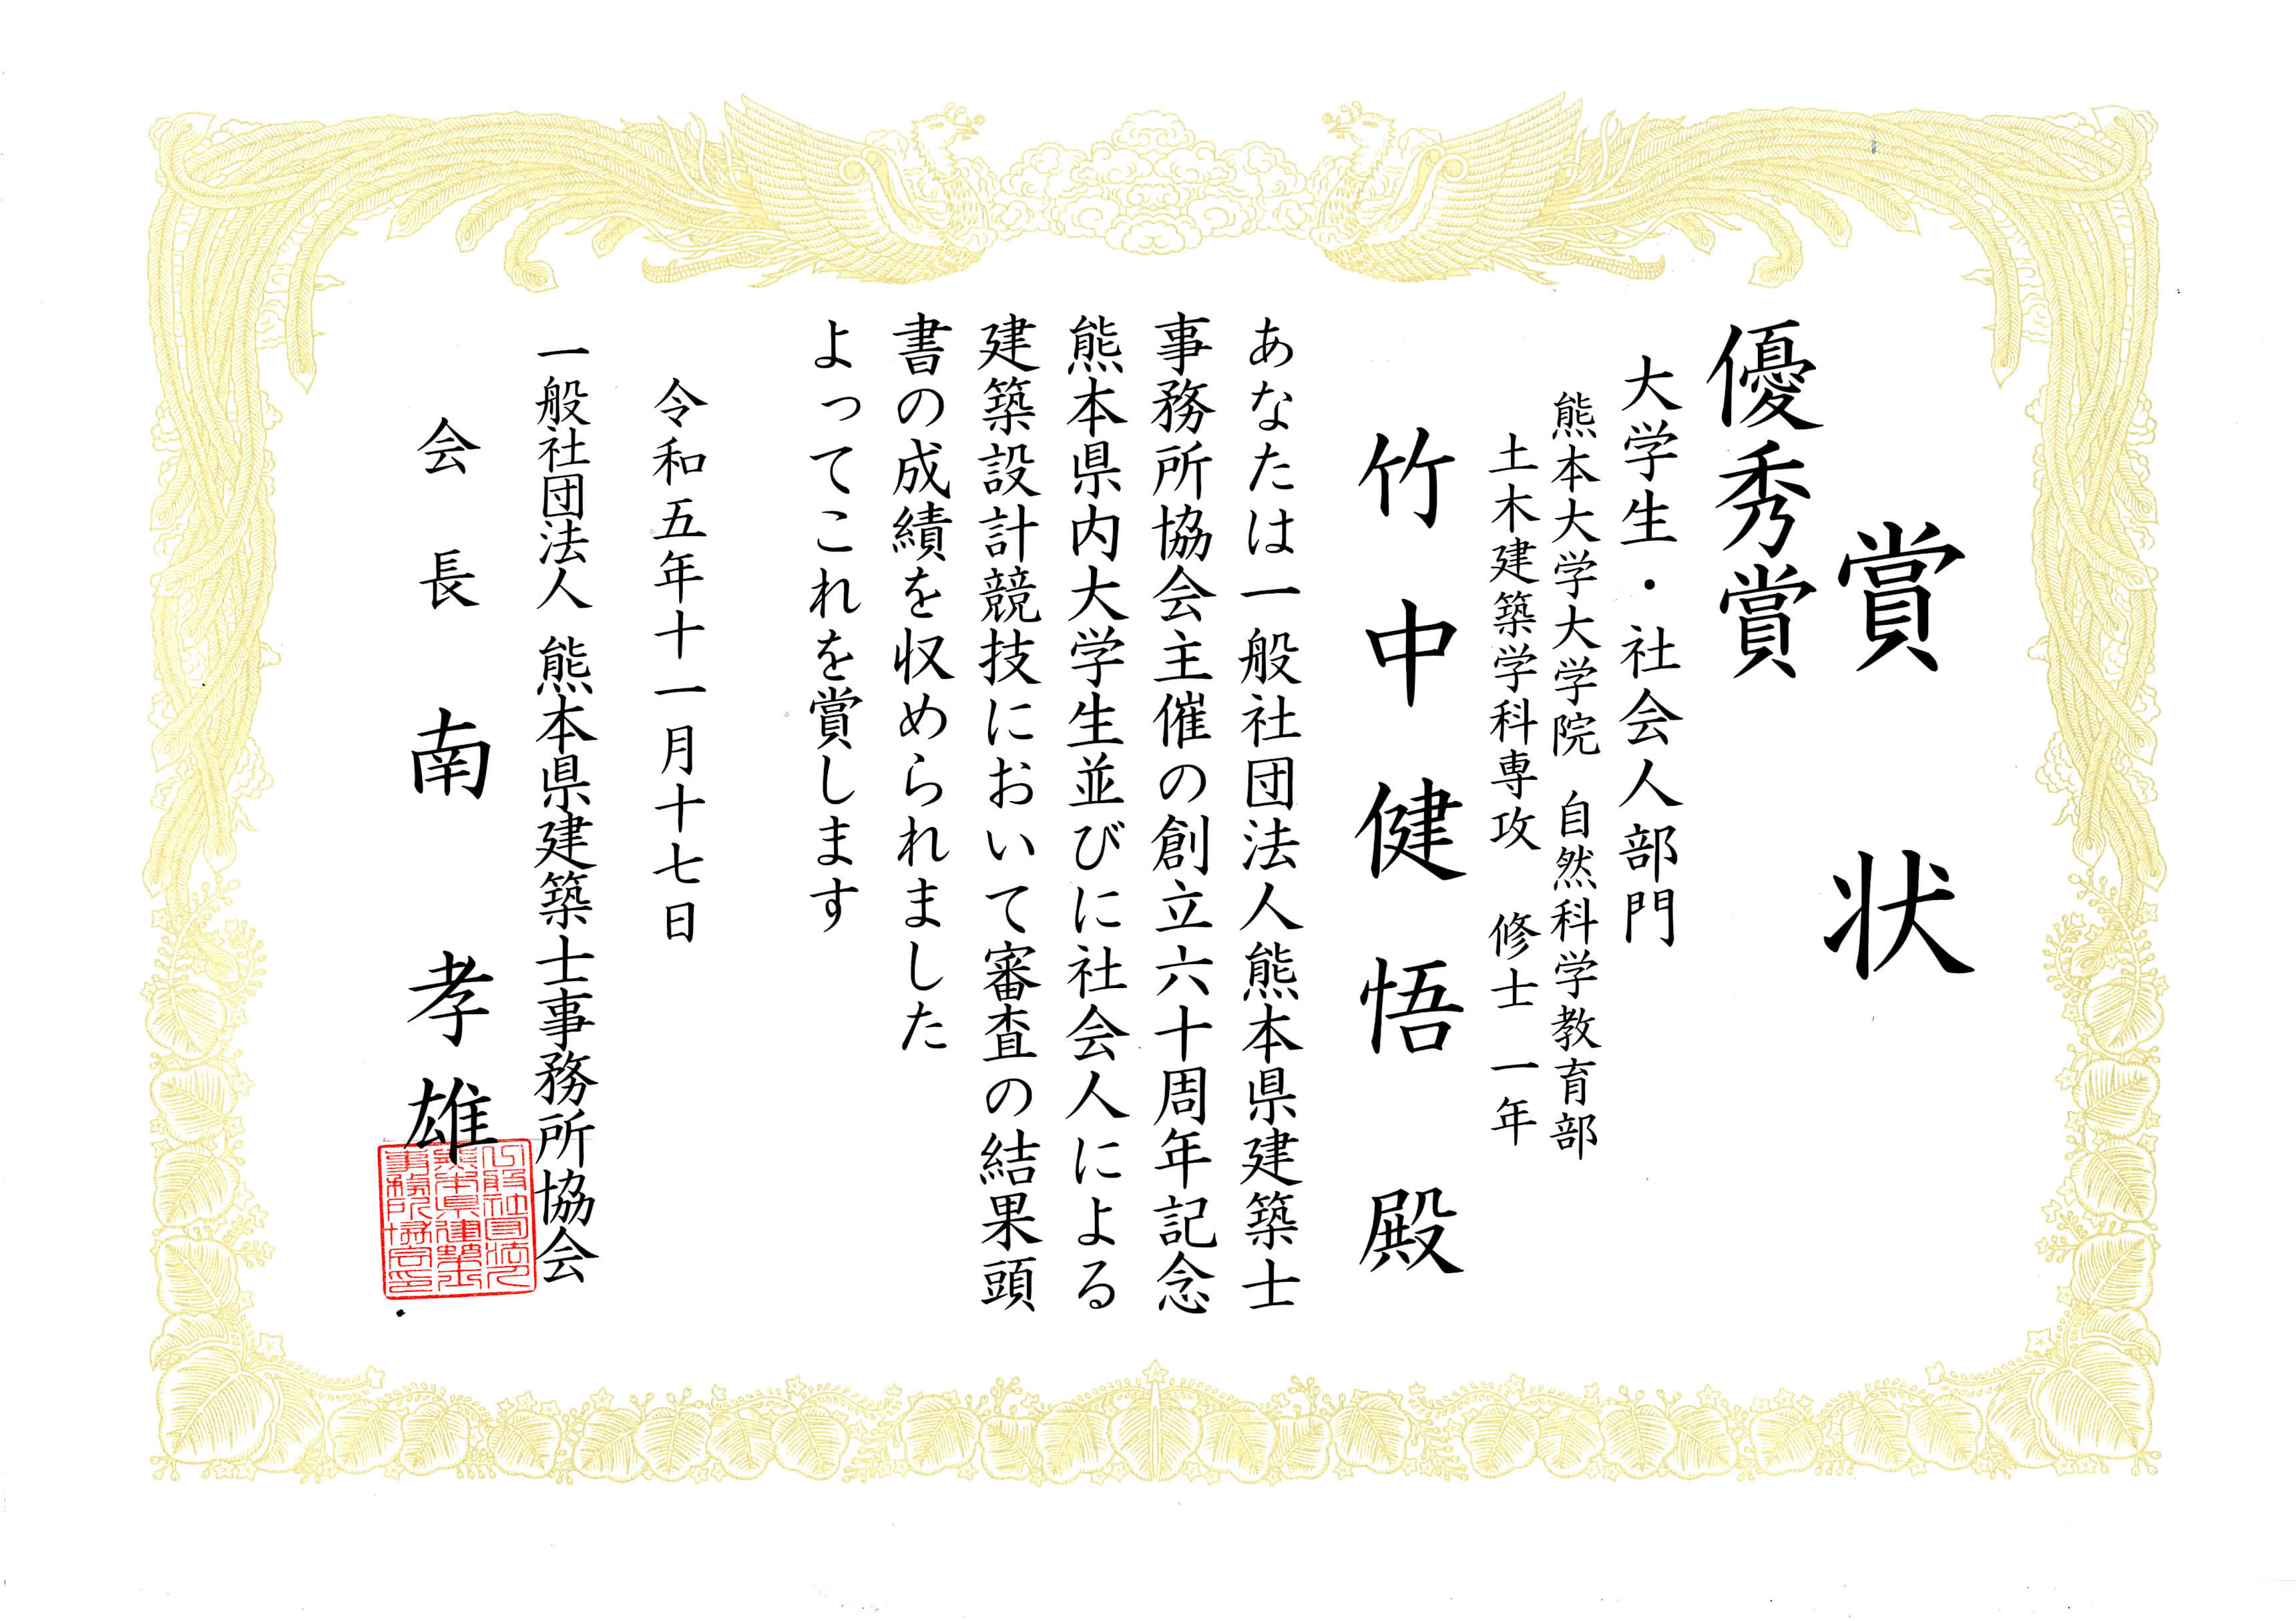 賞状
優秀賞
大学生・社会人部門
熊本大学大学院 自然科学教育部
土木建築学科専攻 修士 一年
竹中健悟 殿
あなたは一般社団法人熊本県建築士
事務所協会主催の創立六十周年記念
熊本県内大学生並びに社会人による
建築設計競技において審査の結果頭
書の成績を収められました
よってこれを賞します
令和五年十一月十七日
一般社団法人 熊本県建築士事務所協会
会長 南 孝雄
一般社団法人
熊本県建築士
事務所協会印